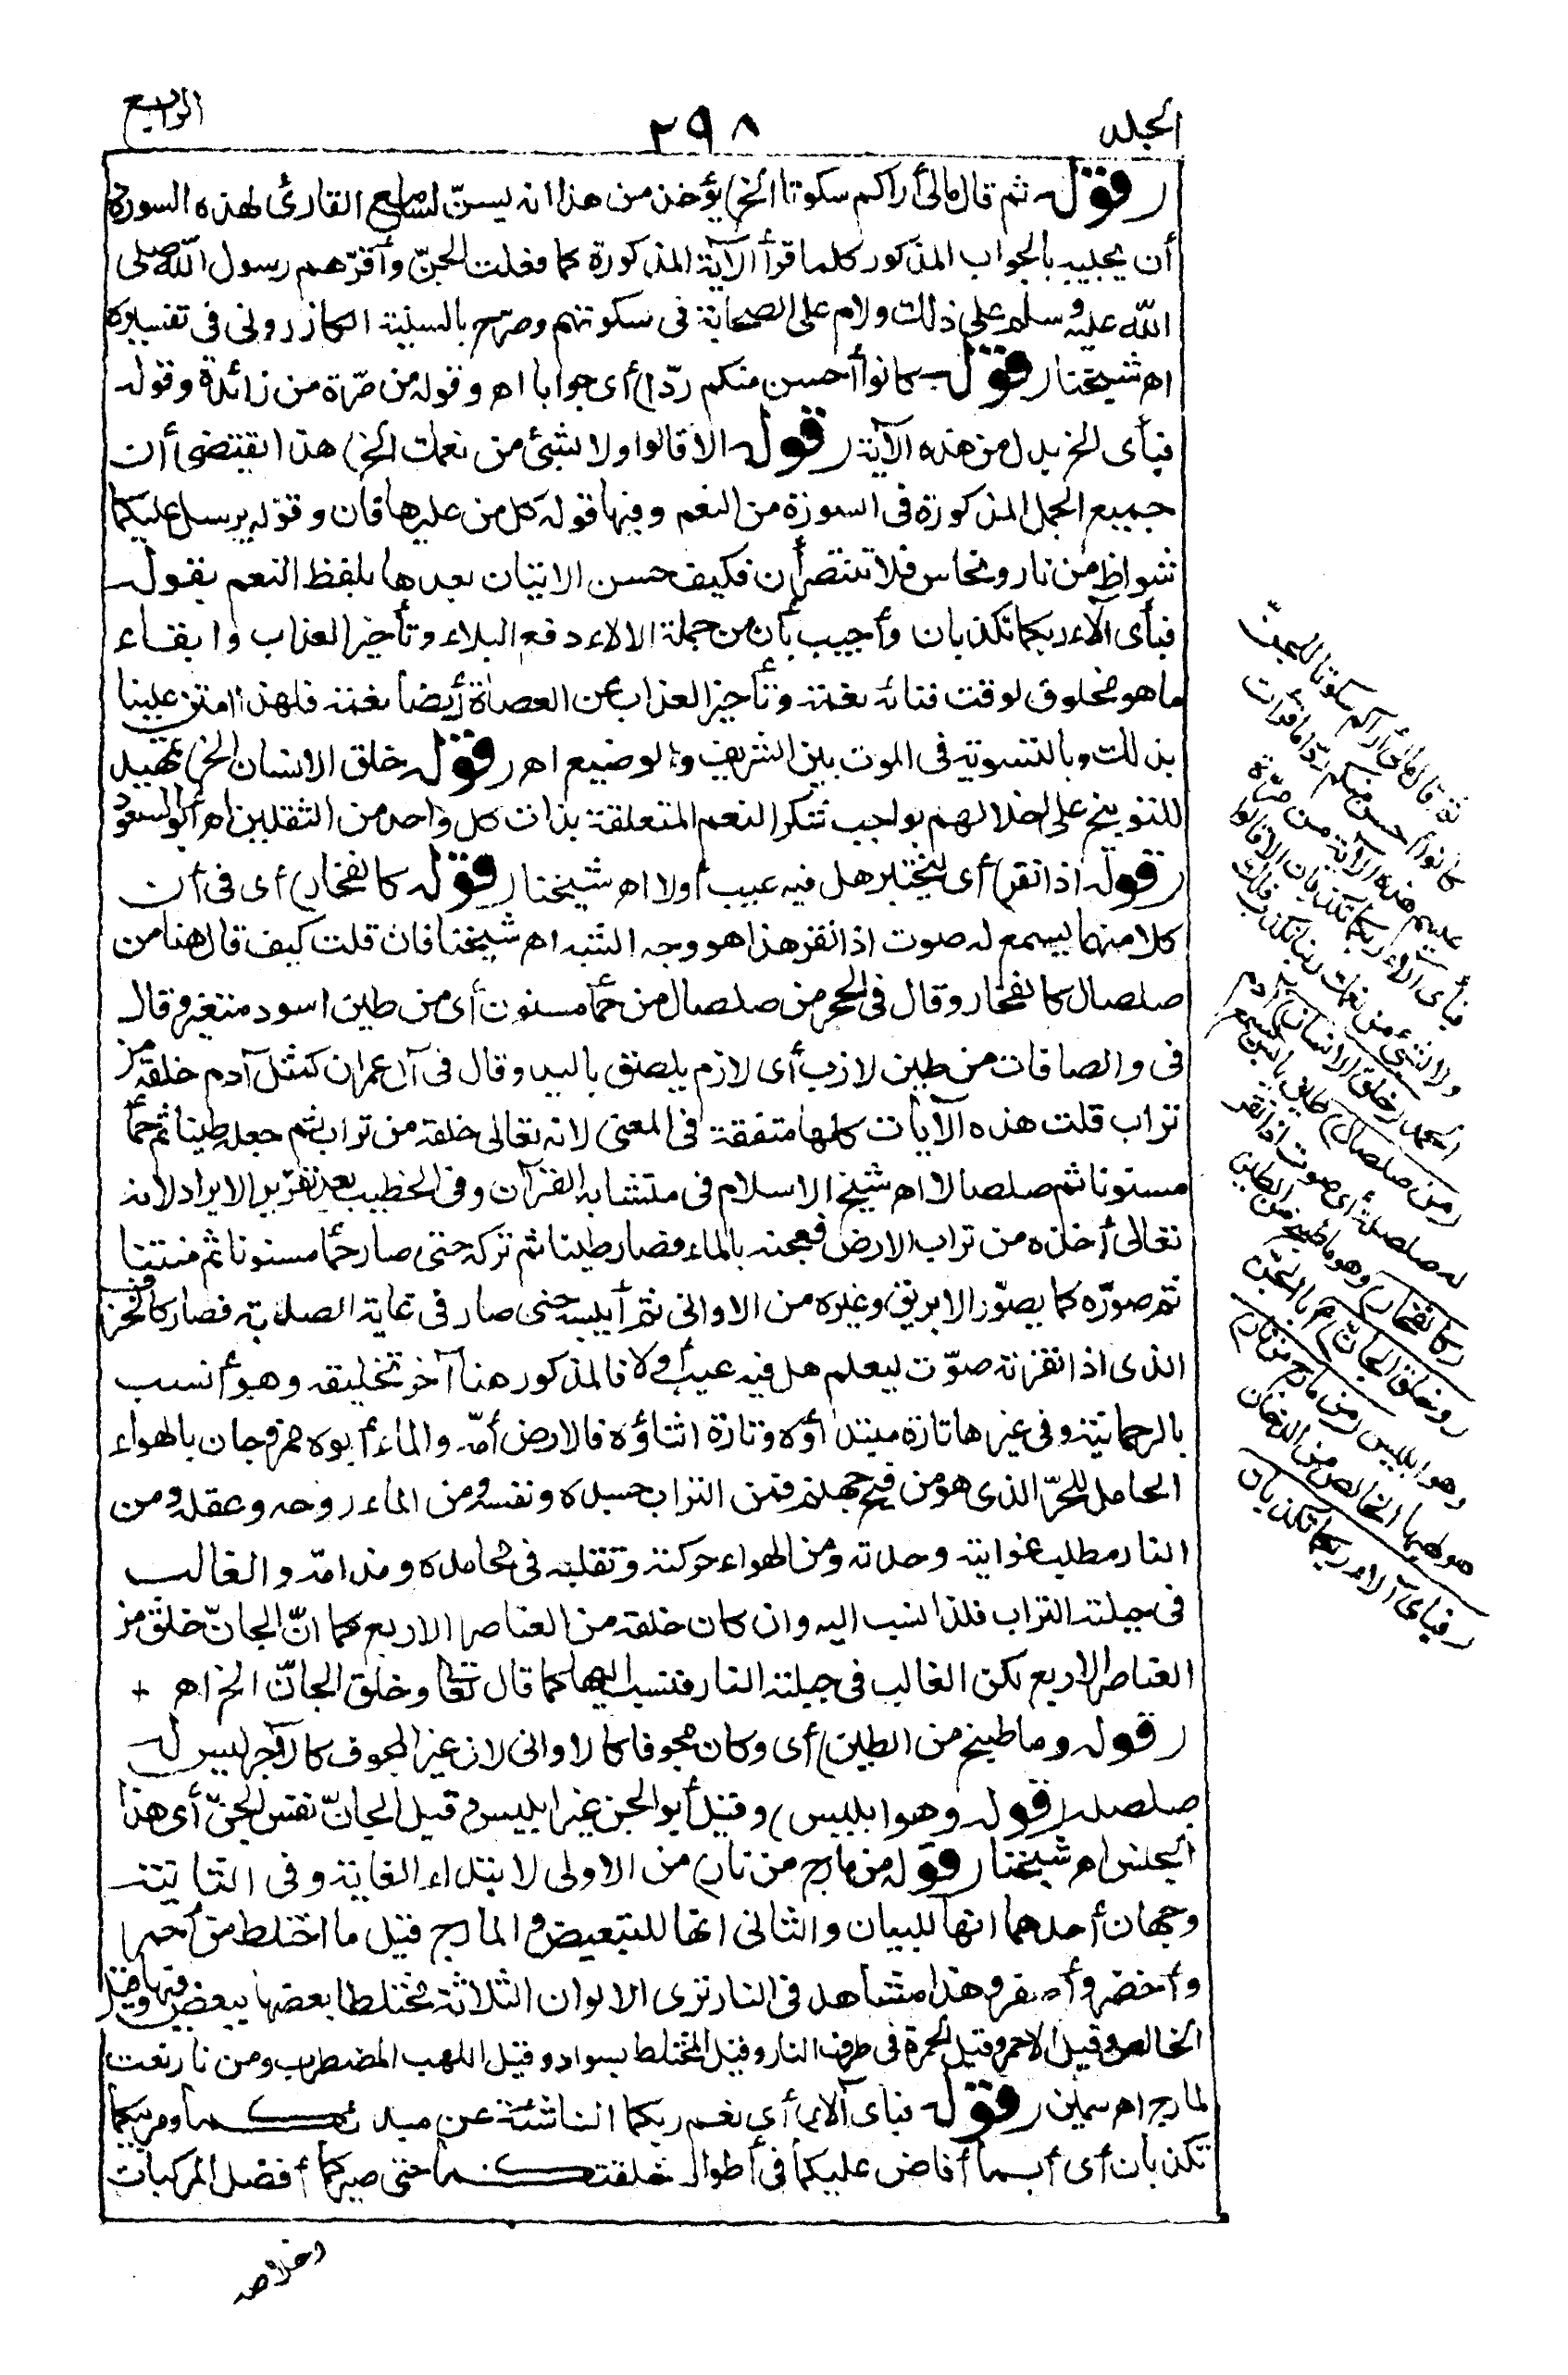 الجلد
٢٩٨
الرابع
(قوله ثم قال مالي أراكم سكوتا الخ) يؤخذ من هذا انه يسنّ لسامع القارئ لهذه السورة
أن يجيبه بالجواب المذكور كلما قرأ الآية المذكورة كما فعلت الجنّ وأقرّهم رسول الله صلى
الله عليه وسلم على ذلك ولام على الصحابة فى سكوتهم وصرّح بالسنية الكازرونى فى تفسيره
اه شيخنا (قوله كانوا أحسن منكم ردّا) أى جوابا اه وقوله من مرّة من زائدة وقوله
فبأى الخ بدل من هذه الآية (قوله الا قالوا ولا بشئ من نعمك الخ) هذا يقتضى أن
جميع الجمل المذكورة فى السورة من النعم وفيها قوله كل من عليها فان وقوله يرسل عليكما
شواظ من نار ونحاس فلا تنتصران فكيف حسن الاتيان بعدها بلفظ النعم بقوله
فبأى آلاء ربكما تكذبان وأجيب بأن من جملة الالاء دفع البلاء وتأخير العذاب وابقاء
ما هو مخلوق لوقت فنائه نعمة وتأخير العذاب عن العصاة أيضا نعمة فلهذا امتن علينا
بذلك وبالتسوية فى الموت بين الشريف والوضيع اه (قوله خلق الانسان الخ) تمهيد
للتوبيخ على اخلالهم بواجب شكر النعم المتعلقة بذات كل واحد من الثقلين اه أبو السعود
(قوله اذا نقر) أى ليختبر هل فيه عيب أولا اه شيخنا (قوله كالفخار) أى فى أن
كلا منهما يسمع له صوت اذا نقر هذا هو وجه الشبه اه شيخنا فان قلت كيف قال هنا من
صلصال كالفخار وقال فى الحجر من صلصال من حمأ مسنون أى من طين اسود متغير وقال
فى والصافات من طين لازب أى لازم يلصق باليد وقال فى آل عمران كمثل آدم خلقه من
تراب قلت هذه الآيات كلها متفقة فى المعنى لانه تعالى خلقه من تراب ثم جعله طينا ثم حمأ
مسنونا ثم صلصالا اه شيخ الاسلام فى متشابه القرآن وفى الخطيب بعد تقرير الايراد لانه
تعالى أخذه من تراب الارض فعجنه بالماء فصار طينا ثم تركه حتى صار حمأ مسنونا ثم منتنا
ثم صوّره كما يصوّر الابريق وغيره من الاوانى ثم أيبسه حتى صار فى غاية الصلابة فصار كالخزف
الذى اذا نقرته صوّت ليعلم هل فيه عيب أولا فالمذكور هنا آخر تخليقه وهو أنسب
بالرحمانية وفى غيرها تارة مبتدأه وتارة اثناؤه فالارض أمّه والماء أبوه ممزوجان بالهواء
الحامل للحرّ الذى هو من فيح جهنم فمن التراب جسده ونفسه ومن الماء روحه وعقله ومن
النار مطلب غوايته وحدته ومن الهواء حركته وتقلبه فى محامده ومذامّه والغالب
فى جبلته التراب فلذا نسب اليه وان كان خلقه من العناصر الاربع كما انّ الجانّ خلق من
العناصر الاربع لكن الغالب فى جبلته النار فنسب اليها كما قال تعالى وخلق الجانّ الخ اه +
(قوله وما طبخ من الطين) أى وكان مجوفا كالاوانى لان غير المجوف كالآجر ليس له
صلصلة (قوله وهو ابليس) وقيل أبو الجن غير ابليس وقيل الجانّ نفس الجنّ أى هذا
الجنس اه شيخنا (قوله من مارج من نار) من الاولى لابتداء الغاية وفى الثانية
وجهان أحدهما انها للبيان والثانى انها للتبعيض والمارج قيل ما اختلط من أحمر
وأخضر وأصفر وهذا مشاهد فى النار ترى الالوان الثلاثة مختلطا بعضها ببعض وقيل
الخالص وقيل الاحمر وقيل الحمرة فى طرف النار وقيل المختلط بسواد وقيل اللهب المضطرب ومن نار نعت
لمارج اه سمين (قوله فبأى آلاء) أى نعم ربكما الناشئة عن مبدئكما ومربيكما
تكذبان أى أبما أفاض عليكما فى أطوار خلقتكما حتى صيركما أفضل المركبات
ثم قال مالي أراكم سكوتا للجنّ
كانوا أحسن منكم ردّا ما قرأت
عليهم هذه الآية من مرّة
فبأى آلاء ربكما تكذبان الا قالوا
ولا بشئ من نعمك ربنا نكذب فلك
الحمد (خلق الانسان) آدم
(من صلصال) طين يابس يسمع
له صلصلة أى صوت اذا نقر
(كالفخار) وهو ما طبخ من الطين
(وخلق الجانّ) أبا الجنّ
وهو ابليس (من مارج من نار)
هو لهبها الخالص من الدخان
(فبأى آلاء ربكما تكذبان